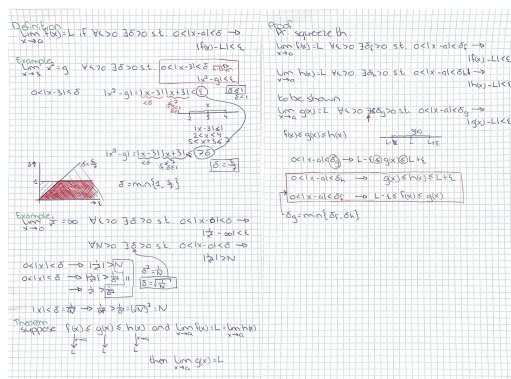 Definition
lim f(x)=L if ∀ε>0 ∃δ>0 s.t. 0<|x-a|<δ →
x→a
|f(x)-L|<ε
Example
lim x²=9 ∀ε>0 ∃δ>0 s.t. 0<|x-3|<δ →
x→3
|x²-9|<ε
0<|x-3|<δ |x²-9|=|x-3||x+3|<ε
<δ
δ≤1
x
2 3 4
|x-3|≤1
2≤x≤4
5≤x+3≤7
|x²-9|=|x-3||x+3|≤7δ
<δ
δ=ε/7
1
δ=min{1, ε/7}
Example
lim 1/x²=∞ ∀ε>0 ∃δ>0 s.t. 0<|x-0|<δ →
x→0
|1/x²-∞|<ε
∀N>0 ∃δ>0 s.t. 0<|x-0|<δ →
|1/x²|>N
0<|x|<δ → |1/x²|>N
0<|x|<δ → |1/x²|>1/δ²
→ 1/x²>1/δ²
δ²=1/N
δ=1/√N
|x|<δ=1/√N → 1/x²>1/δ²=(√N)²=N
Theorem
suppose f(x)≤g(x)≤h(x) and lim f(x)=L=lim h(x)
x→a x→a
L L L
then lim g(x)=L
x→a
Proof
squeeze th
lim f(x)=L ∀ε>0 ∃δf>0 s.t. 0<|x-a|<δf →
x→a
|f(x)-L|<ε
lim h(x)=L ∀ε>0 ∃δh>0 s.t. 0<|x-a|<δh →
x→a
|h(x)-L|<ε
to be shown
lim g(x)=L ∀ε>0 ∃δg>0 s.t. 0<|x-a|<δg →
x→a
|g(x)-L|<ε
f(x)≤g(x)≤h(x)
g(x)
L-ε L L+ε
0<|x-a|<δg → L-ε≤g(x)≤L+ε
0<|x-a|<δh → g(x)≤h(x)≤L+ε
0<|x-a|<δf → L-ε≤f(x)≤g(x)
δg=min{δf, δh}